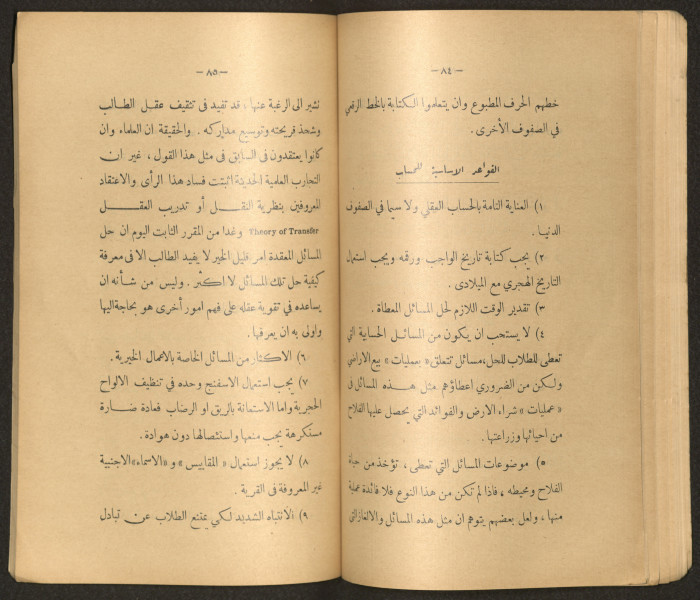 — ٨٤ —
خطهم الحرف المطبوع وان يتعلموا الكتابة بالخط الرقعي
في الصفوف الأخرى .
القواعد الاساسية للحساب
١) العناية التامة بالحساب العقلي ولا سيما في الصفوف
الدنيا .
٢) يجب كتابة تاريخ الواجب ورقمه ويجب استعمال
التاريخ الهجري مع الميلادى .
٣) تقدير الوقت اللازم لحل المسائل المعطاة .
٤) لا يستحب ان يكون من المسائل الحسابية التي
تعطى للطلاب للحل، مسائل تتعلق «بعمليات» بيع الاراضي
ولكن من الضروري اعطاؤهم مثل هذه المسائل فى
«عمليات» شراء الارض والفوائد التي يحصل عليها الفلاح
من احيائها وزراعتها .
٥) موضوعات المسائل التي تعطى ، تؤخذ من حياة
الفلاح ومحيطه ، فاذا لم تكن من هذا النوع فلا فائدة عملية
منها ، ولعل بعضهم يتوهم ان مثل هذه المسائل والالغاز التي
— ٨٥ —
نشير الى الرغبة عنها ، قد تفيد فى تثقيف عقل الطالب
وشحذ قريحته وتوسيع مداركه . والحقيقة ان العلماء وان
كانوا يعتقدون فى السابق في مثل هذا القول ، غير ان
التجارب العلمية الحديثة اثبتت فساد هذا الرأى والاعتقاد
المعروفين بنظرية النقل أو تدريب العقل
Theory of Transfer وغدا من المقرر الثابت اليوم ان حل
المسائل المعقدة امر قليل الخير لا يفيد الطالب الا فى معرفة
كيفية حل تلك المسائل لا اكثر . وليس من شأنه ان
يساعده في تقوية عقله على فهم امور أخرى هو بحاجة اليها
واولى به ان يعرفها .
٦) الاكثار من المسائل الخاصة بالاعمال الخيرية .
٧) يجب استعمال الاسفنج وحده في تنظيف الالواح
الحجرية واما الاستعانة بالريق او الرضاب فعادة ضارة
مستكرهة يجب منعها واستئصالها دون هوادة .
٨) لا يجوز استعمال «المقاييس» و «الاسماء» الاجنبية
غير المعروفة فى القرية .
٩) الانتباه الشديد لكي يمتنع الطلاب عن تبادل